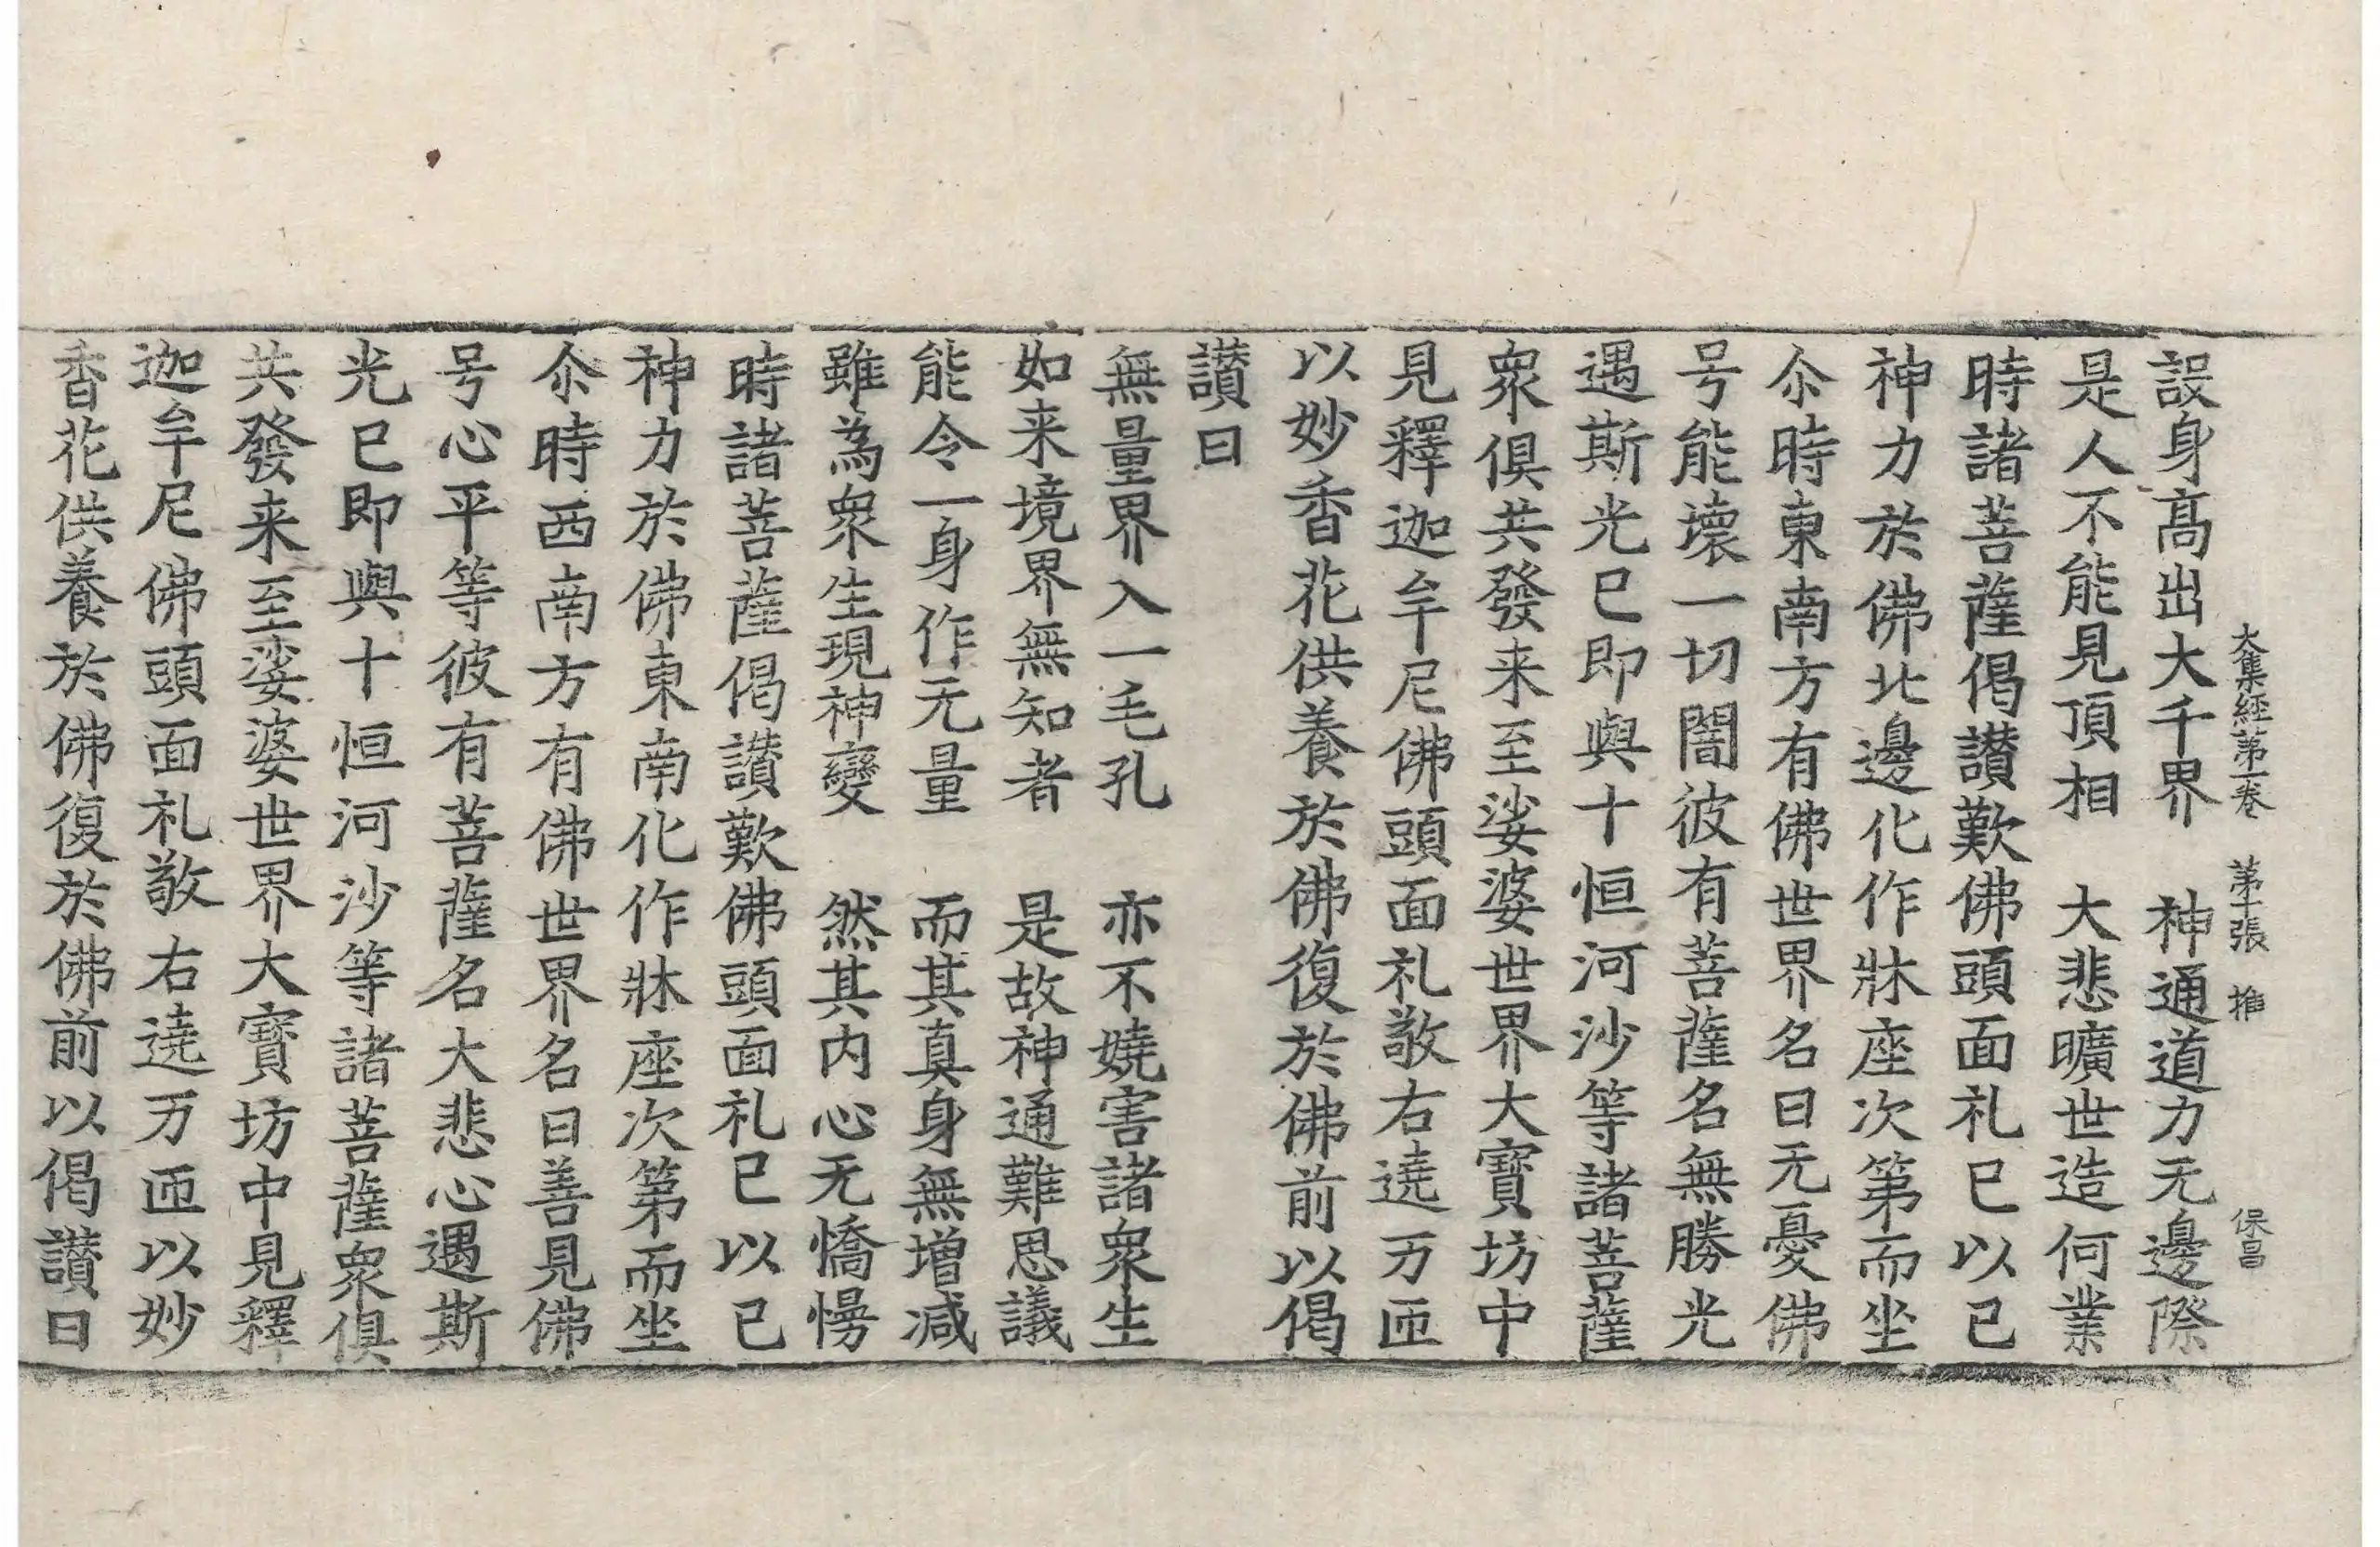 大集經第一卷 第十張 推 保昌
設身高出大千界 神通道力无邊際
是人不能見頂相 大悲曠世造何業
時諸菩薩偈讃歎佛頭面礼已以己
神力於佛北邊化作牀座次第而坐
尒時東南方有佛世界名曰无憂佛
号能壞一切闇彼有菩薩名無勝光
遇斯光已即與十恒河沙等諸菩薩
衆俱共發来至娑婆世界大寳坊中
見釋迦牟尼佛頭面礼敬右遶万匝
以妙香花供養於佛復於佛前以偈
讃曰
無量界入一毛孔 亦不嬈害諸衆生
如来境界無知者 是故神通難思議
能令一身作无量 而其真身無增減
雖為衆生現神變 然其内心无憍慢
時諸菩薩偈讃歎佛頭面礼已以己
神力於佛東南化作牀座次第而坐
尒時西南方有佛世界名曰善見佛
号心平等彼有菩薩名大悲心遇斯
光已即與十恒河沙等諸菩薩衆俱
共發来至娑婆世界大寳坊中見釋
迦牟尼佛頭面礼敬右遶万匝以妙
香花供養於佛復於佛前以偈讃曰